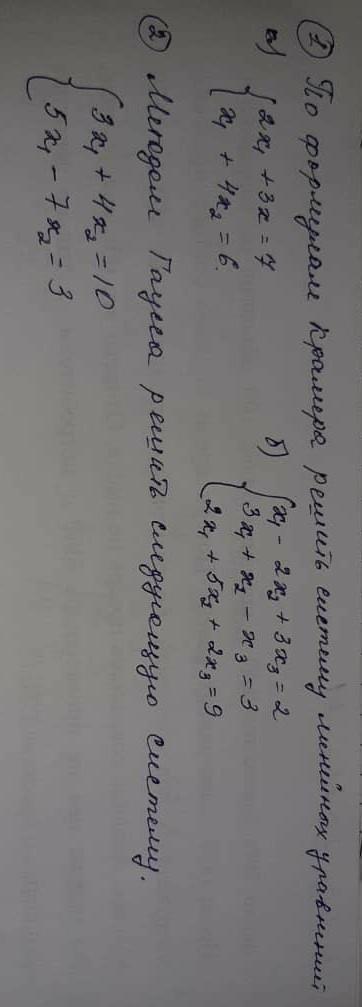 ① По формулам Крамера решить систему линейных уравнений
а) { 2x₁ + 3x = 7
x₁ + 4x₂ = 6.
б) { x₁ - 2x₂ + 3x₃ = 2
3x₁ + x₂ - x₃ = 3
2x₁ + 5x₂ + 2x₃ = 9
② Методом Гаусса решить следующую систему.
{ 3x₁ + 4x₂ = 10
5x₁ - 7x₂ = 3